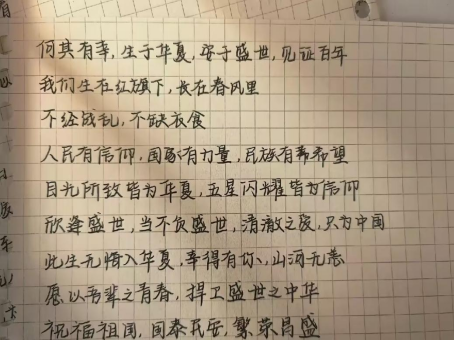 何其有幸，生于华夏，安于盛世，见证百年
我们生在红旗下，长在春风里
不经战乱，不缺衣食
人民有信仰，国家有力量，民族有希希望
目光所致皆为华夏，五星闪耀皆为信仰
欣逢盛世，当不负盛世，清澈之爱，只为中国
此生无悔入华夏，幸得有你，山河无恙
愿以吾辈之青春，捍卫盛世之中华
祝福祖国，国泰民安，繁荣昌盛